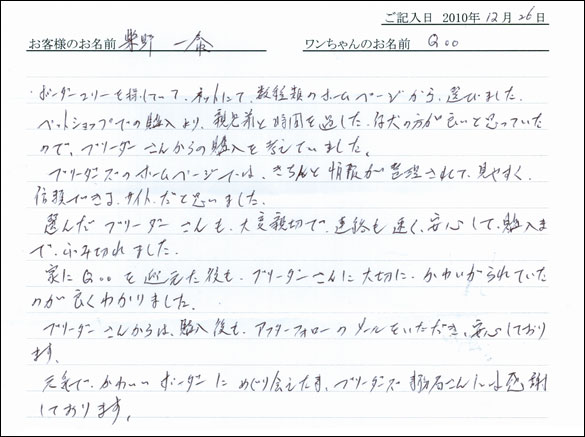 ご記入日 2010年 12月 26日
お客様のお名前 柴野 一 ワンちゃんのお名前 Qoo
ボーダーコリーを探していて、ネットにて、数種類のホームページから、選びました。
ペットショップでの購入より、親兄弟と時間を過した、仔犬の方が良いと思っていた
ので、ブリーダーさんからの購入を考えていました。
ブリーダーズのホームページでは、きちんと情報が整理されて、見やすく、
信頼できる、サイトだと思いました。
選んだブリーダーさんも、大変親切で、連絡も速く、安心して、購入ま
で、ふみ切れました。
家にQooを迎えた後も、ブリーダーさんに大切に、かわいがられていた
のが良くわかりました。
ブリーダーさんからは、購入後も、アフターフォローのメールをいただき、安心しており
ます。
元気で、かわいいボーダーにめぐり会えたま、ブリーダーズ さんには感謝
しております。